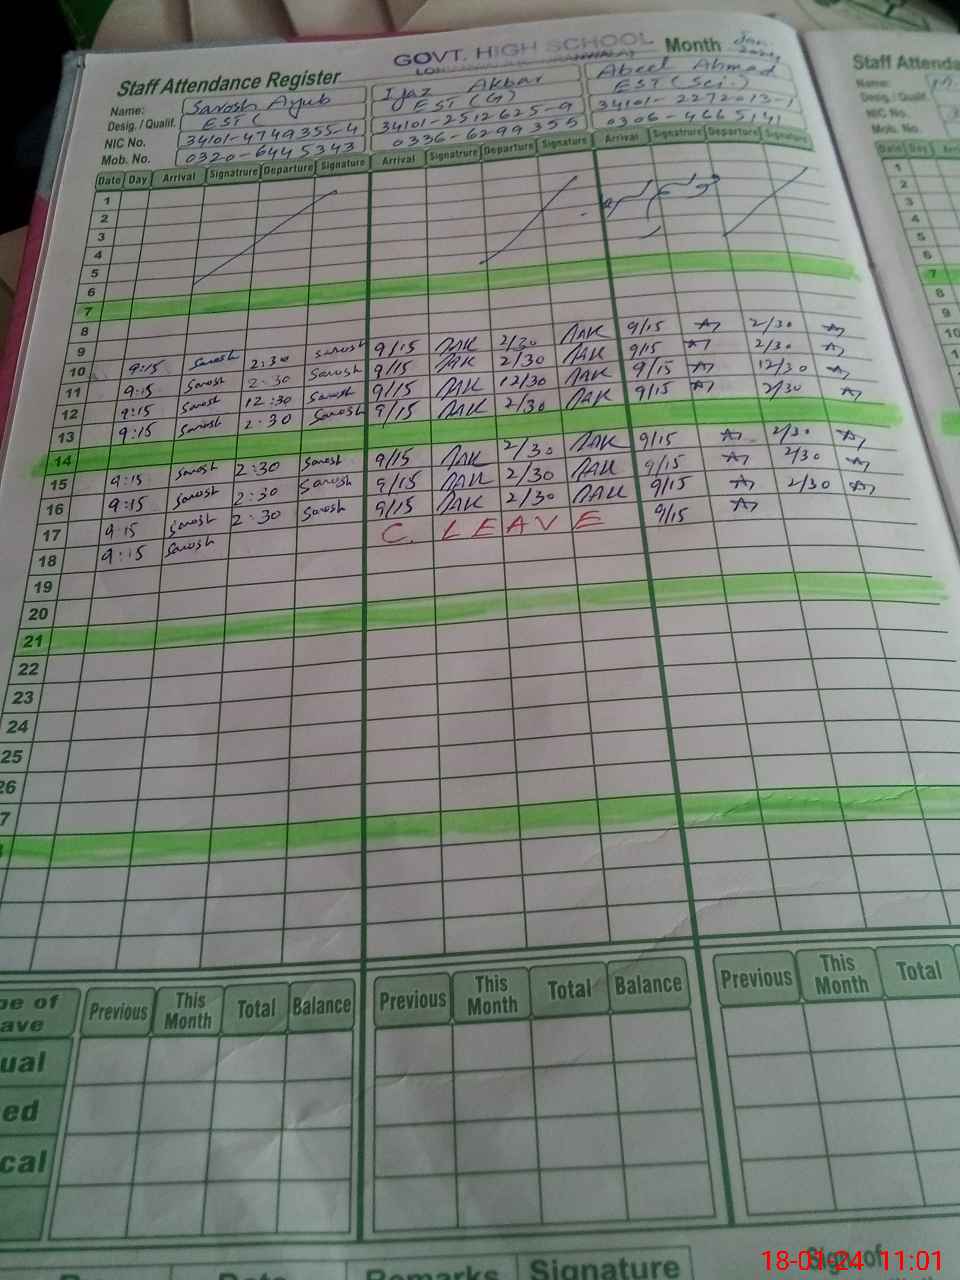 GOVT. HIGH SCHOOL
Staff Attendance Register Month Jan.
Name: Sarosh Ayub Ijaz Akbar Abeel Ahmad
Desig. / Qualif. EST ( EST (G) EST (Sci.)
NIC No. 34101-4749355-4 34101-2512625-9 34101-2272013-1
Mob. No. 0320-6445343 0336-6299355 0306-4665141
Date Day Arrival Signatrure Departure Signature Arrival Signatrure Departure Signature Arrival Signatrure Departure Signature
1
2
3
4
5
6
7
8
9 9/15 IAK 2/30 IAK 9/15 2/30
10 9:15 Sarosh 2:30 Sarosh 9/15 IAK 2/30 IAK 9/15 2/30
11 9:15 Sarosh 2:30 Sarosh 9/15 IAK 12/30 IAK 9/15 12/30
12 9:15 Sarosh 12:30 Sarosh 9/15 IAK 2/30 IAK 9/15 2/30
13 9:15 Sarosh 2:30 Sarosh
14 9/15 IAK 2/30 IAK 9/15 2/30
15 9:15 Sarosh 2:30 Sarosh 9/15 IAK 2/30 IAK 9/15 2/30
16 9:15 Sarosh 2:30 Sarosh 9/15 IAK 2/30 IAK 9/15 2/30
17 9:15 Sarosh 2:30 Sarosh C. LEAVE 9/15
18 9:15 Sarosh
19
20
21
22
23
24
25
26
7
pe of
ave Previous This Month Total Balance Previous This Month Total Balance Previous This Month Total
ual
ed
cal
Date Remarks Signature Sign of
Staff Attenda
Name:
Desig. / Quali
NIC No.
Mob. No.
Date Day Arri
1
2
3
4
5
6
7
8
9
10
18-01-24 11:01